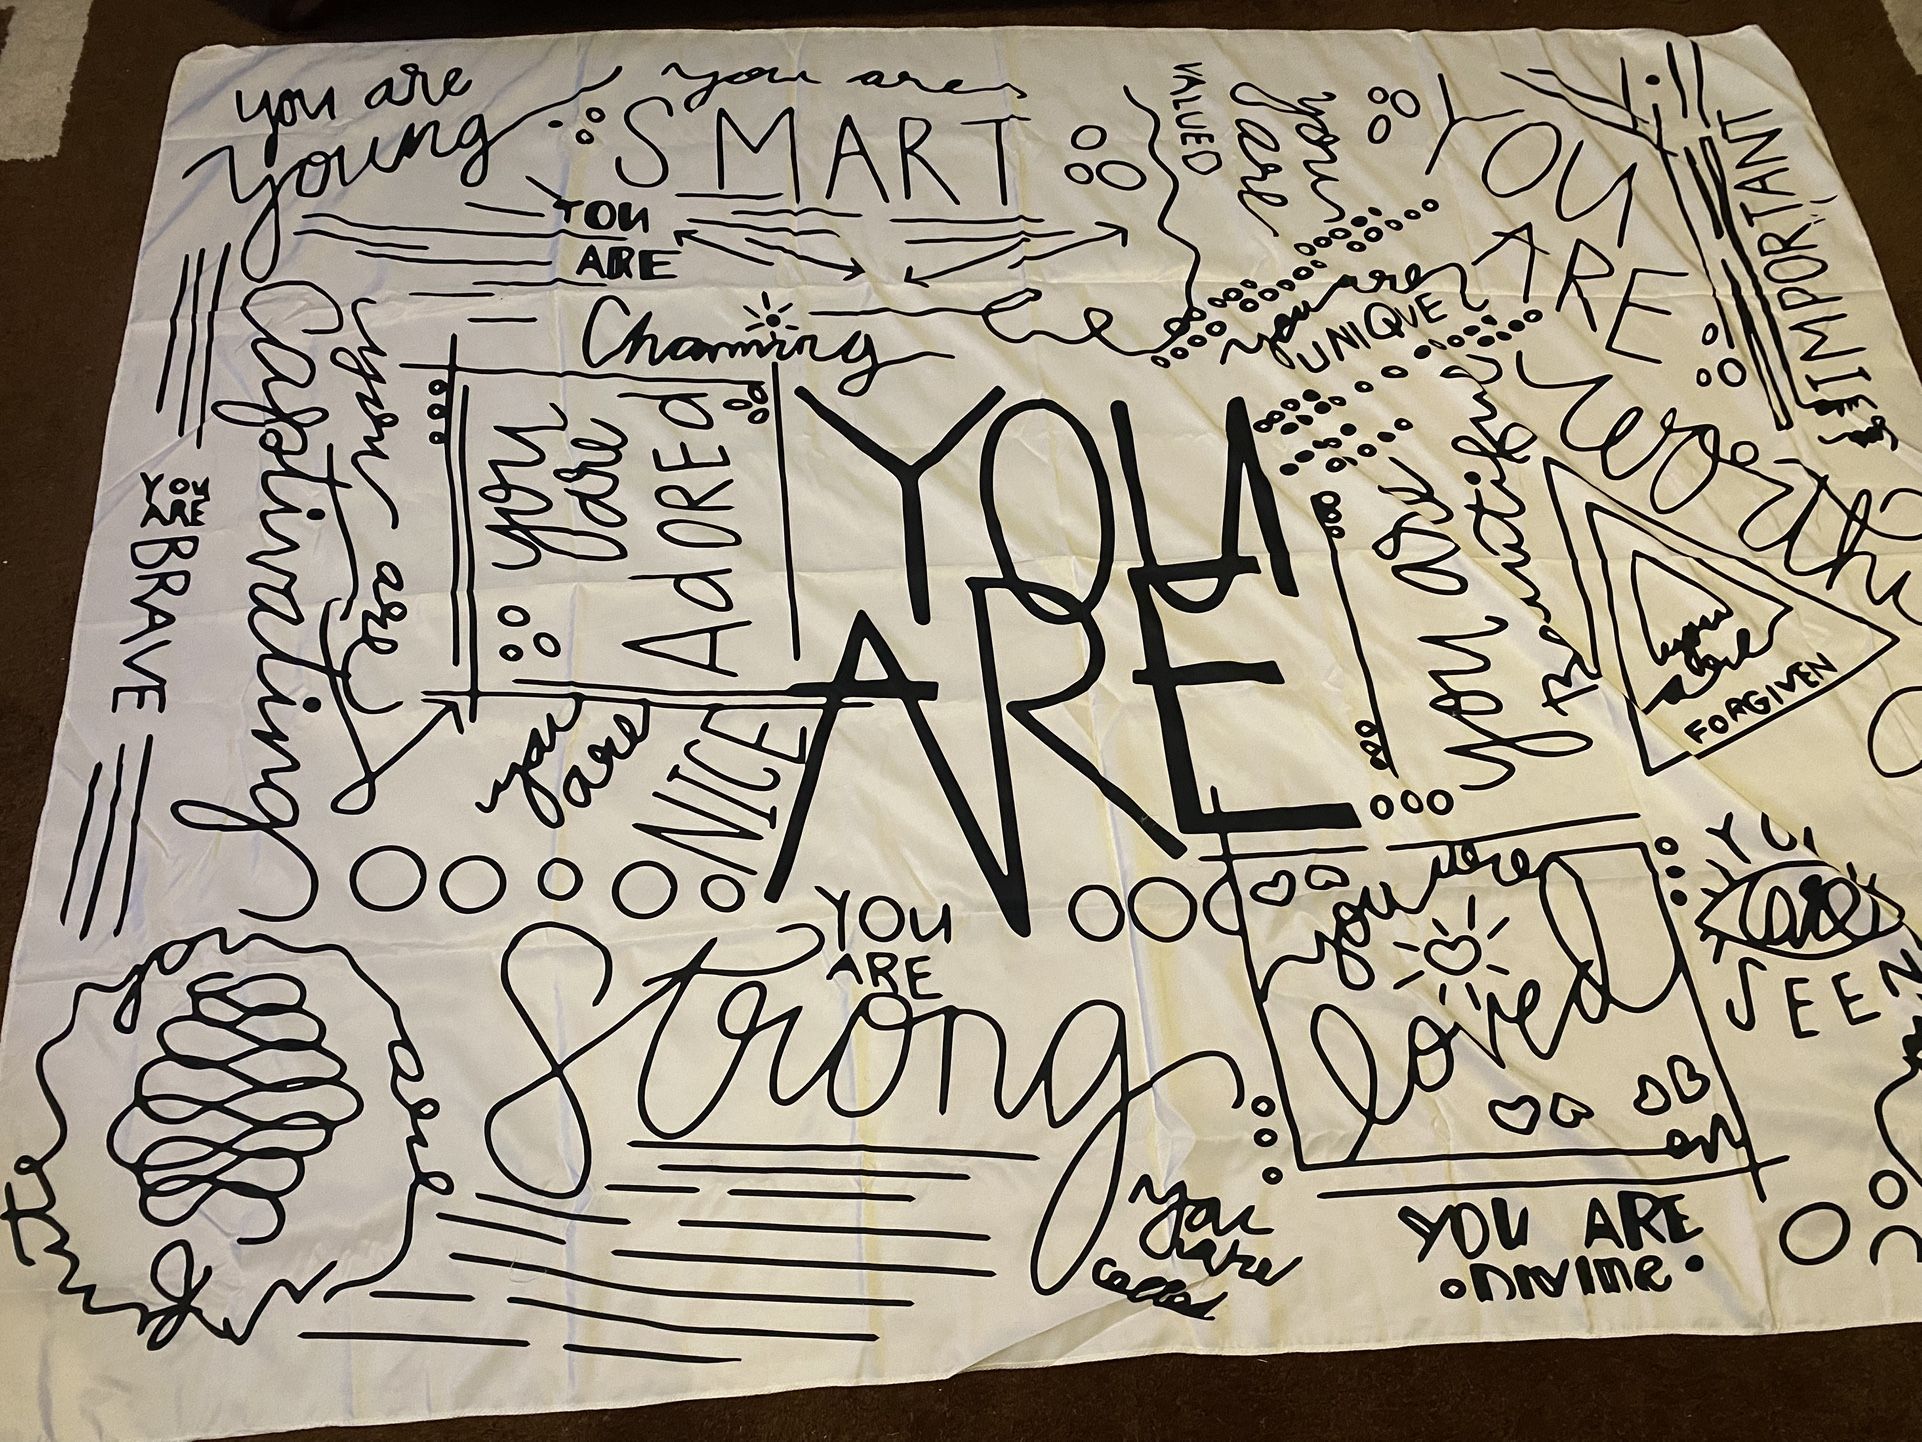 you are
young
you are
SMART
VALUED
you
are
YOU
ARE
IMPORTANT
YOU
ARE
Charming
you are
UNIQUE
you are
Captivating
you
are
AdORED
YOU
ARE
you are
Beautiful
you
are
FORGIVEN
YOU
ARE
BRAVE
you
are
NICE
YOU
ARE
Strong
you are
loved
are
SEEN
you
are
called
YOU ARE
DIVINE